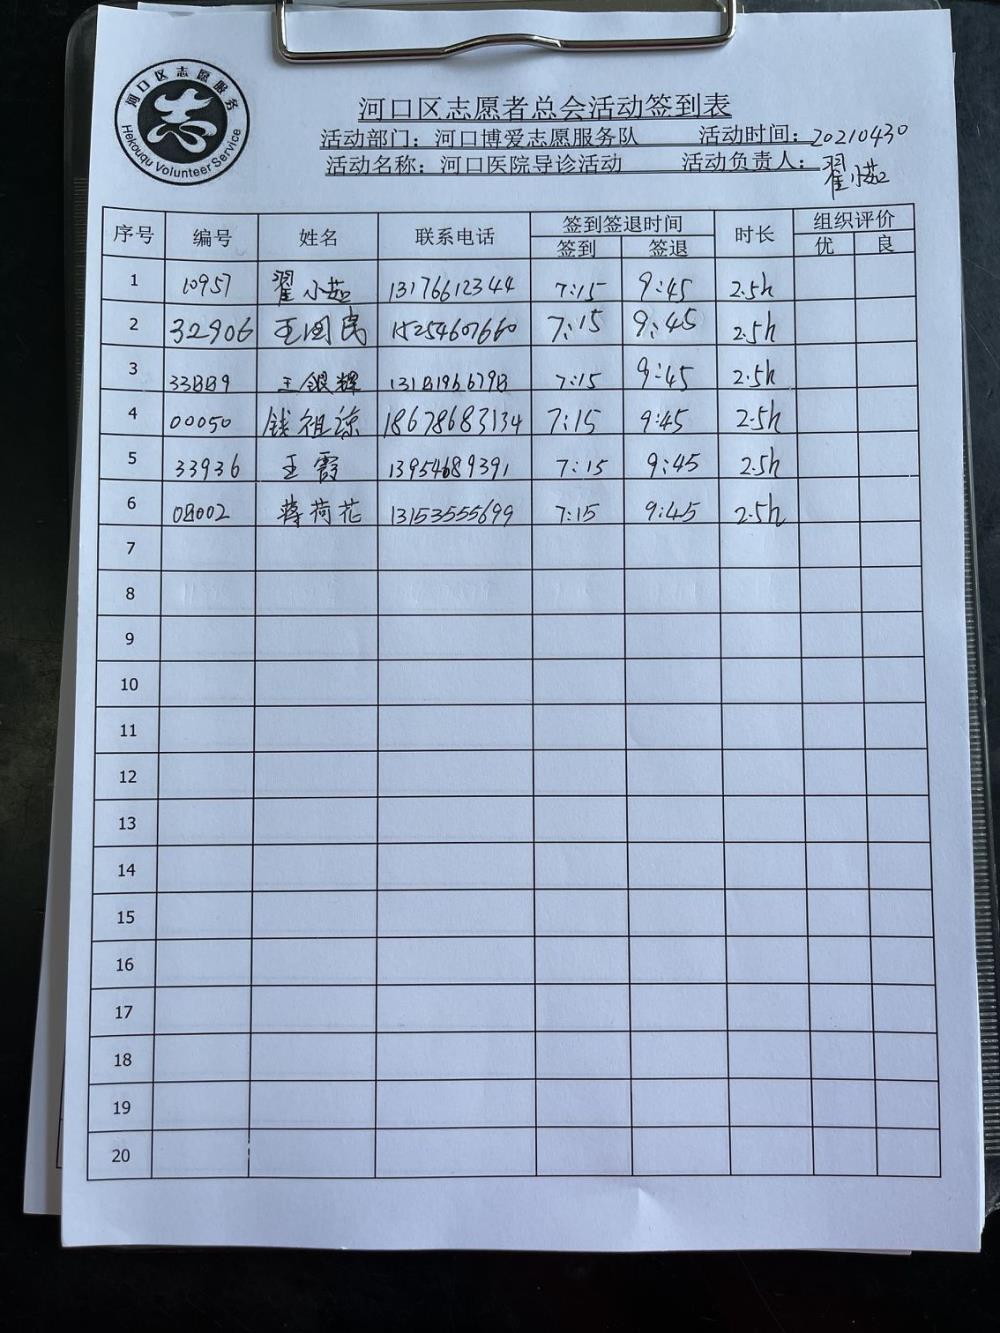 河口区志愿服务
志
Hekouqu Volunteer Service
河口区志愿者总会活动签到表
活动部门：河口博爱志愿服务队 活动时间：20210430
活动名称：河口医院导诊活动 活动负责人：翟小茹
序号 编号 姓名 联系电话 签到签退时间 时长 组织评价
签到 签退 优 良
1 10957 翟小茹 13176612344 7:15 9:45 2.5h
2 32906 王国民 15254607660 7:15 9:45 2.5h
3 33889 王银辉 13181966798 7:15 9:45 2.5h
4 00050 钱祖谅 18678683134 7:15 9:45 2.5h
5 33936 王霞 13954689391 7:15 9:45 2.5h
6 08002 蒋荷花 13153555699 7:15 9:45 2.5h
7
8
9
10
11
12
13
14
15
16
17
18
19
20